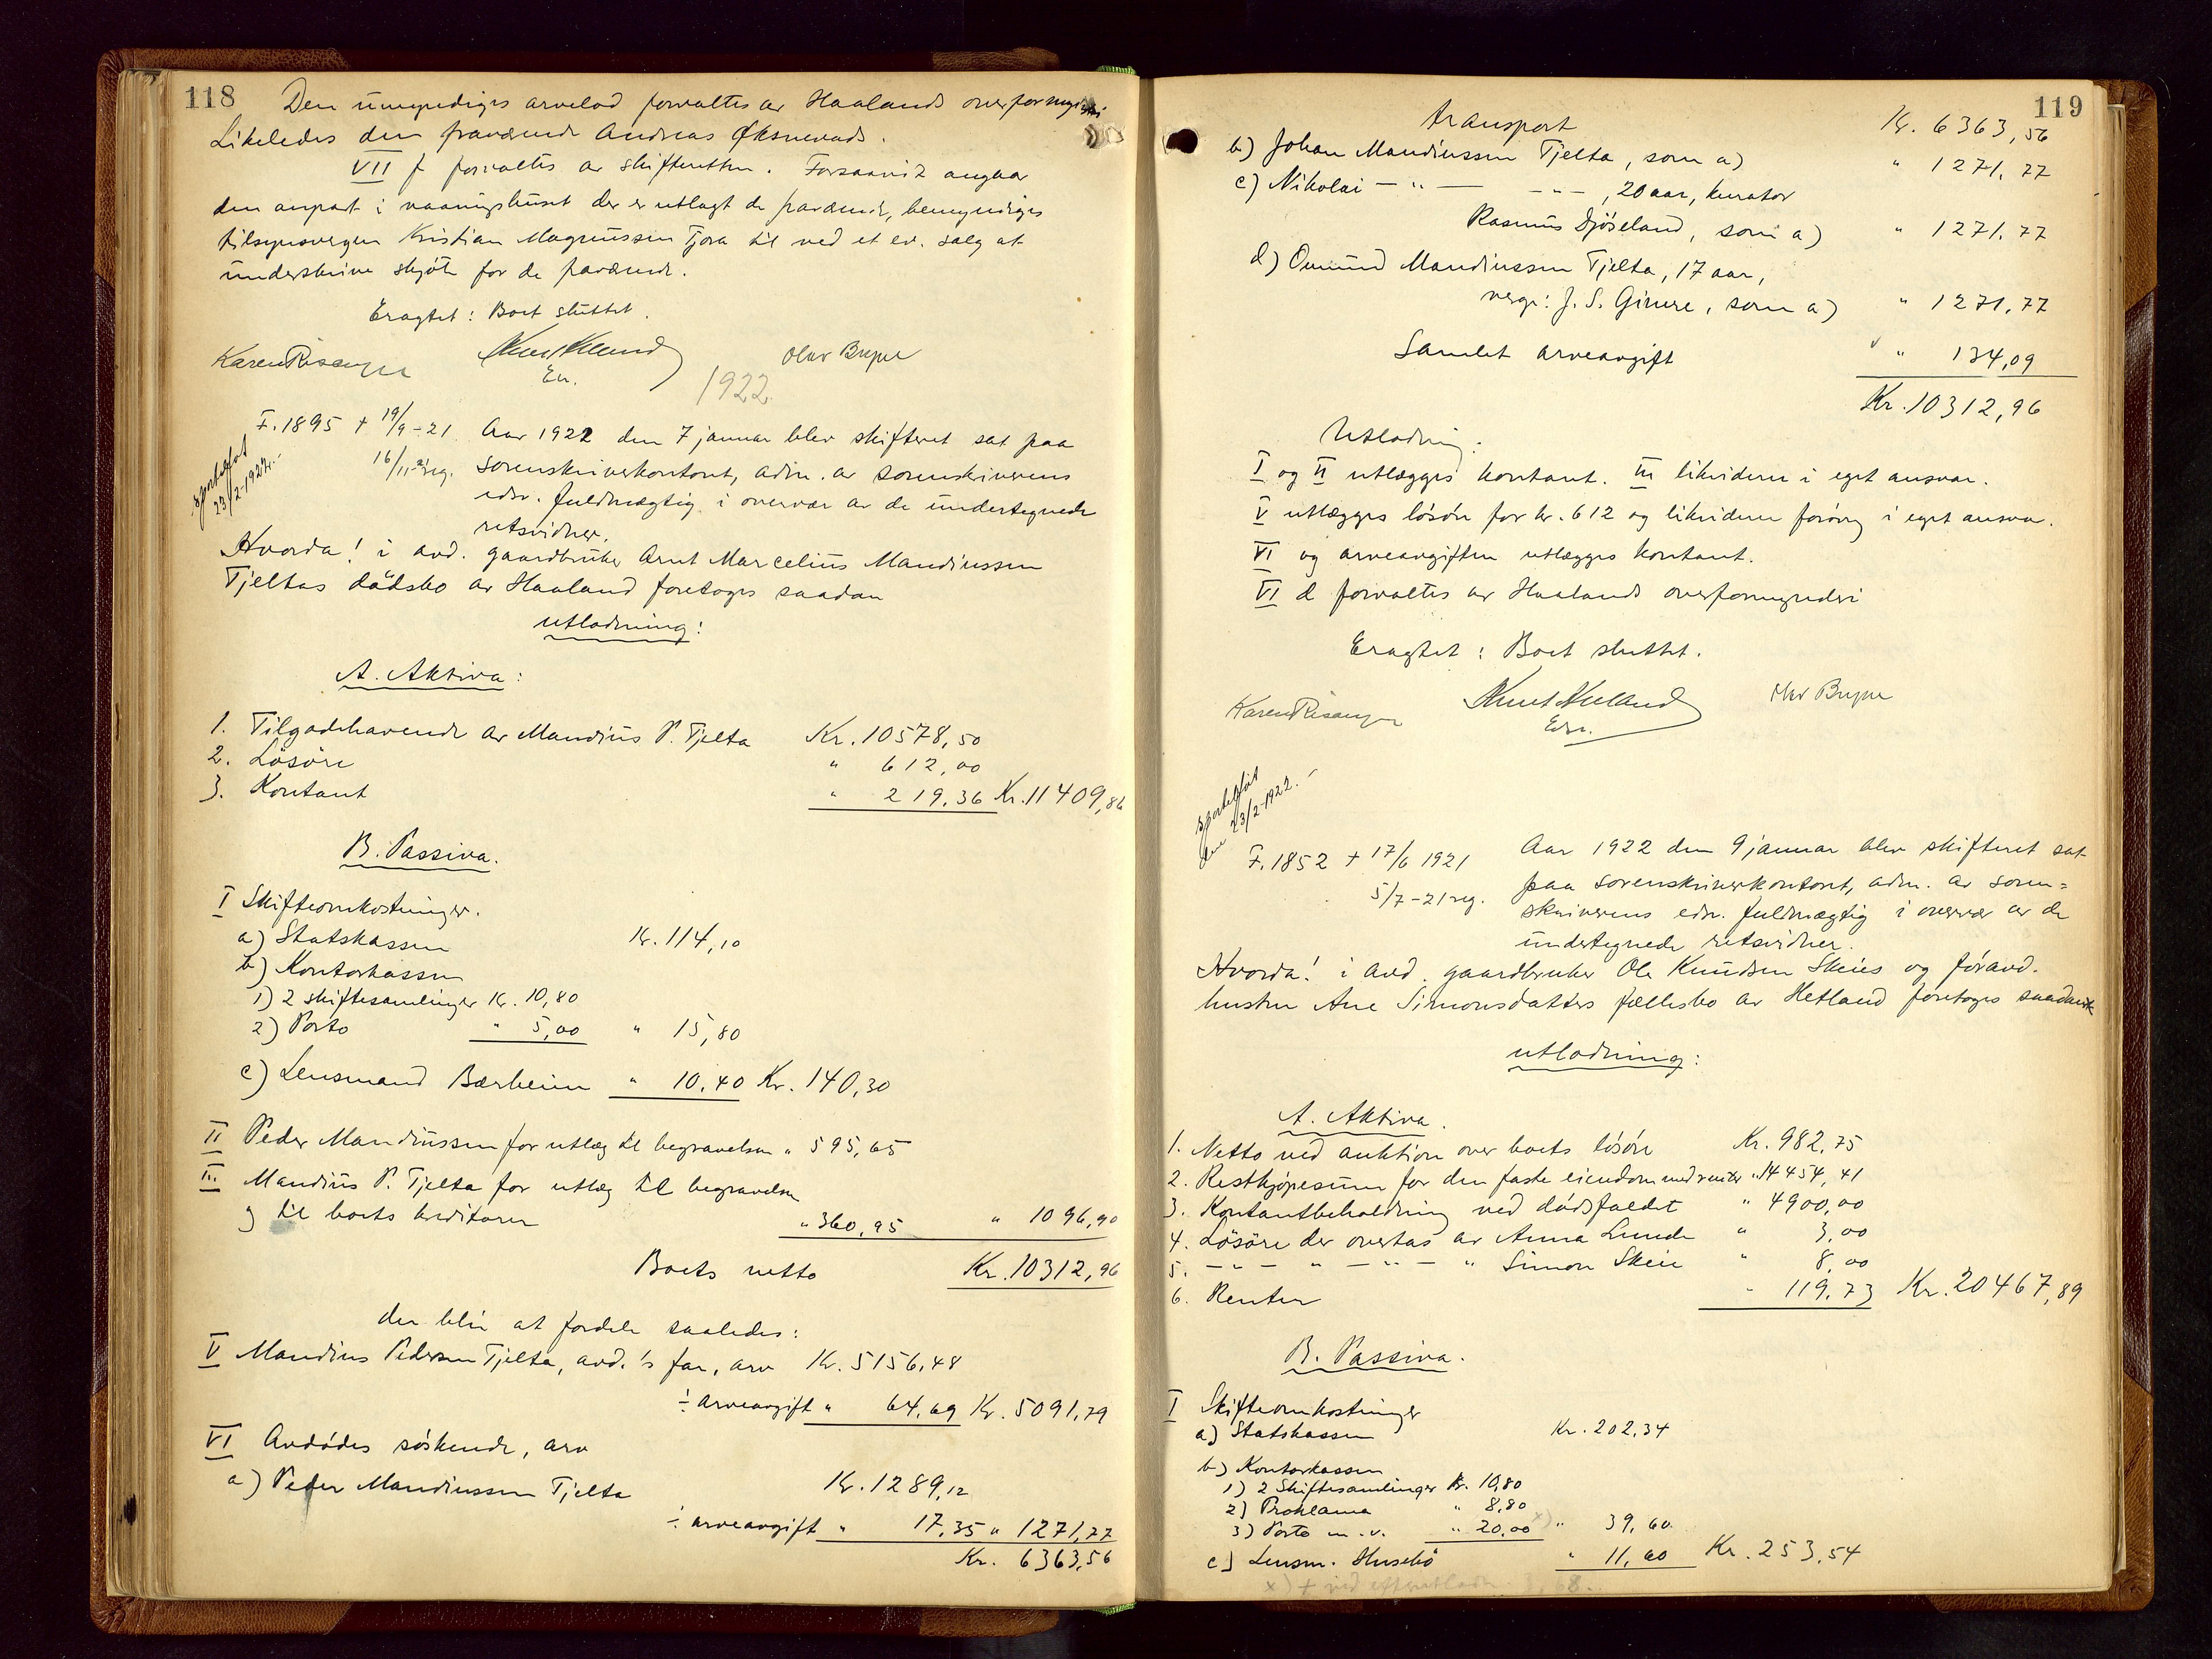 118
Den umyndiges arvelod forvaltes av Haalands overformynderi
Likeledes den fraværende Andreas Øksnevads.
VII f forvaltes av skifteretten. Forsaavidt angaar
den anpart i vaaningshuset der er utlagt de fraværende, bemyndiges
tilsynsvergen Kristian Magnussen Tjora til ved et ev. salg at
underskrive skjöte for de fraværende.
Eragtet: Boet sluttet.
Karen Risanger
Knut Aeland
Olav Bryne
Edsv.
1922.
F. 1895 + 19/9-21.
16/11 21 reg.
sportelgjort
23/2-1922.
Aar 1922 den 7 januar blev skifteret sat paa
sorenskriverkontoret, adm. av sorenskriverens
edsv. fuldmægtig i overvær av de undertegnede
retsvidner.
Hvorda! i avd. gaardbruker Arnt Marcelius Maudiussen
Tjeltas dödsbo av Haaland foretoges saadan
utlodning:
A. Aktiva:
1. Tilgodehavende av Maudius P. Tjelta Kr. 10578,50
2. Lösöre " 612,00
3. Kontant " 219,36 Kr. 11409,86
B. Passiva.
I Skifteomkostninger.
a) Statskassen Kr. 114,10
b) Kontorkassen
1) 2 skiftesamlinger Kr. 10,80
2) Porto " 5,00 " 15,80
c) Lensmand Bærheim " 10,40 Kr. 140,30
II Peder Maudiussen for utlæg til begravelsen " 595,65
III Maudius P. Tjelta for utlæg til begravelsen
og til boets kreditorer " 360,95 " 1096,90
Boets netto Kr. 10312,96
der blir at fordele saaledes:
V Maudius Pedersen Tjelta, avd.'s far, arv Kr. 5156,48
÷ arveavgift " 64,69 Kr. 5091,79
VI Avdödes söskende, arv
a) Peder Maudiussen Tjelta Kr. 1289,12
÷ arveavgift " 17,35 " 1271,77
Kr. 6363,56
119
transport Kr. 6363,56
b) Johan Maudiussen Tjelta, som a) " 1271,77
c) Nikolai - " - - " -, 20 aar, kurator
Rasmus Djöseland, som a) " 1271,77
d) Omund Maudiussen Tjelta, 17 aar,
verge: J. S. Gimre, som a) " 1271,77
Samlet arveavgift " 134,09
Kr. 10312,96
Utlodning:
I og II utlægges kontant. III likviderer i eget ansvar.
V utlægges lösöre for kr. 612 og likviderer forövrig i eget ansvar.
VI og arveavgiften utlægges kontant.
VI d forvaltes av Haalands overformynderi
Eragtet: Boet sluttet.
Karen Risanger
Knut Aeland
Olav Bryne
Edsv.
sportelgjort
den 23/2-1922.
F. 1852 + 17/6 1921
5/7-21 reg.
Aar 1922 den 9 januar blev skifteret sat
paa sorenskriverkontoret, adm. av soren=
skriverens edsv. fuldmægtig i overvær av de
undertegnede retsvidner.
Hvorda! i avd. gaardbruker Ole Knudsen Skeies og föravd.
hustru Ane Simonsdatters fællesbo av Hetland foretoges saadan
utlodning:
A. Aktiva.
1. Netto ved auktion over boets lösöre Kr. 982,75
2. Restkjöpesum for den faste eiendom med renter " 14454,41
3. Kontantbeholdning ved dödsfaldet " 4900,00
4. Lösöre der overtas av Anna Lunde " 3,00
5. - " - " - " - " Simon Skeie " 8,00
6. Renter " 119,73 Kr. 20467,89
B. Passiva.
I Skifteomkostninger
a) Statskassen Kr. 202,34
b) Kontorkassen
1) 2 Skiftesamlinger Kr. 10,80
2) Proklama " 8,80
3) Porto m.v. " 20,00 x) " 39,60
c) Lensm. Husebö " 11,60 Kr. 253,54